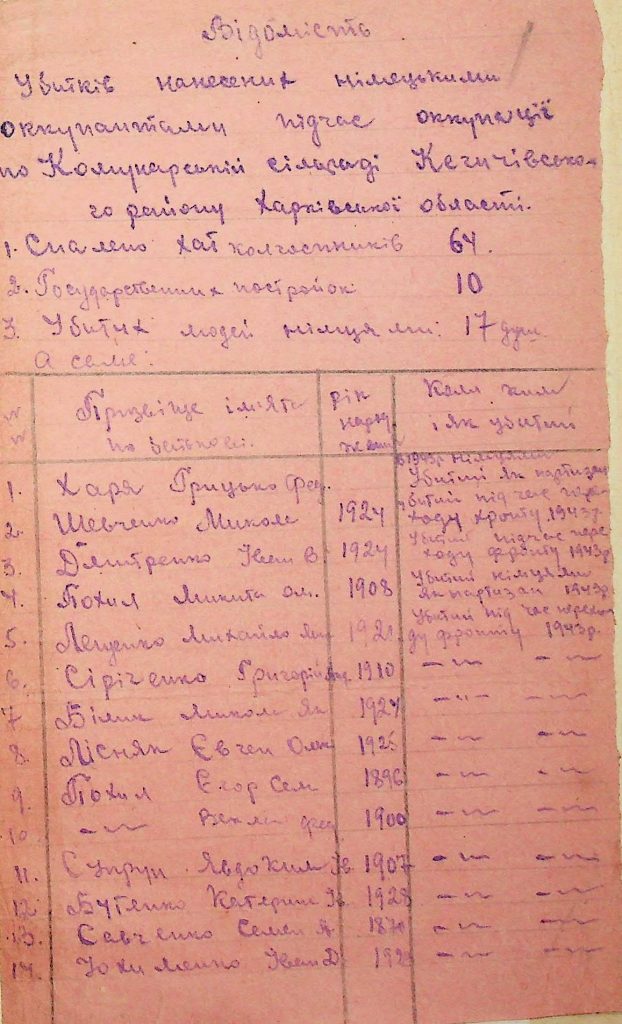 Відомість
Убитків нанесених німецькими
оккупантами підчас оккупації
по Комунарській сільраді Кегичівсько-
го району Харківської області.
1. Спалено хат колгоспників 64.
2. Государственних построй́ок 10
3. Убитих людей німцями: 17 душ
А саме:
№ № Призвіще ім'я та по батькові. рік народження Коли ким і як убитий
1. Харя Грицько Фед. в 1943р. німцями Убитий як партизан
2. Шевченко Микола 1924 Убитий під час пере-ходу фронту 1943р.
3. Дмитренко Іван В. 1924 Убитий підчас пере-ходу фронту 1943р.
4. Похил Микита 1908 Убитий німцями як партизан 1943р.
5. Лещенко Михайло Убитий під час перехо-ду фронту 1943р.
6. Сіріченко Григорій 1910 –"– –"–
7 Білик Микола Як 1924 –"– –"–
8. Лісняк Євген 1925 –"– –"–
9. Похил Єгор Сем 1896 –"– –"–
10. –"– Фед 1900 –"– –"–
11. Супрун Явдоким Ів 1907 –"– –"–
12 Бутенко Катерина Ів. 1928 –"– –"–
13. Савченко Семен Я. 1870 –"– –"–
14. Юхименко Іван Д. –"– –"–